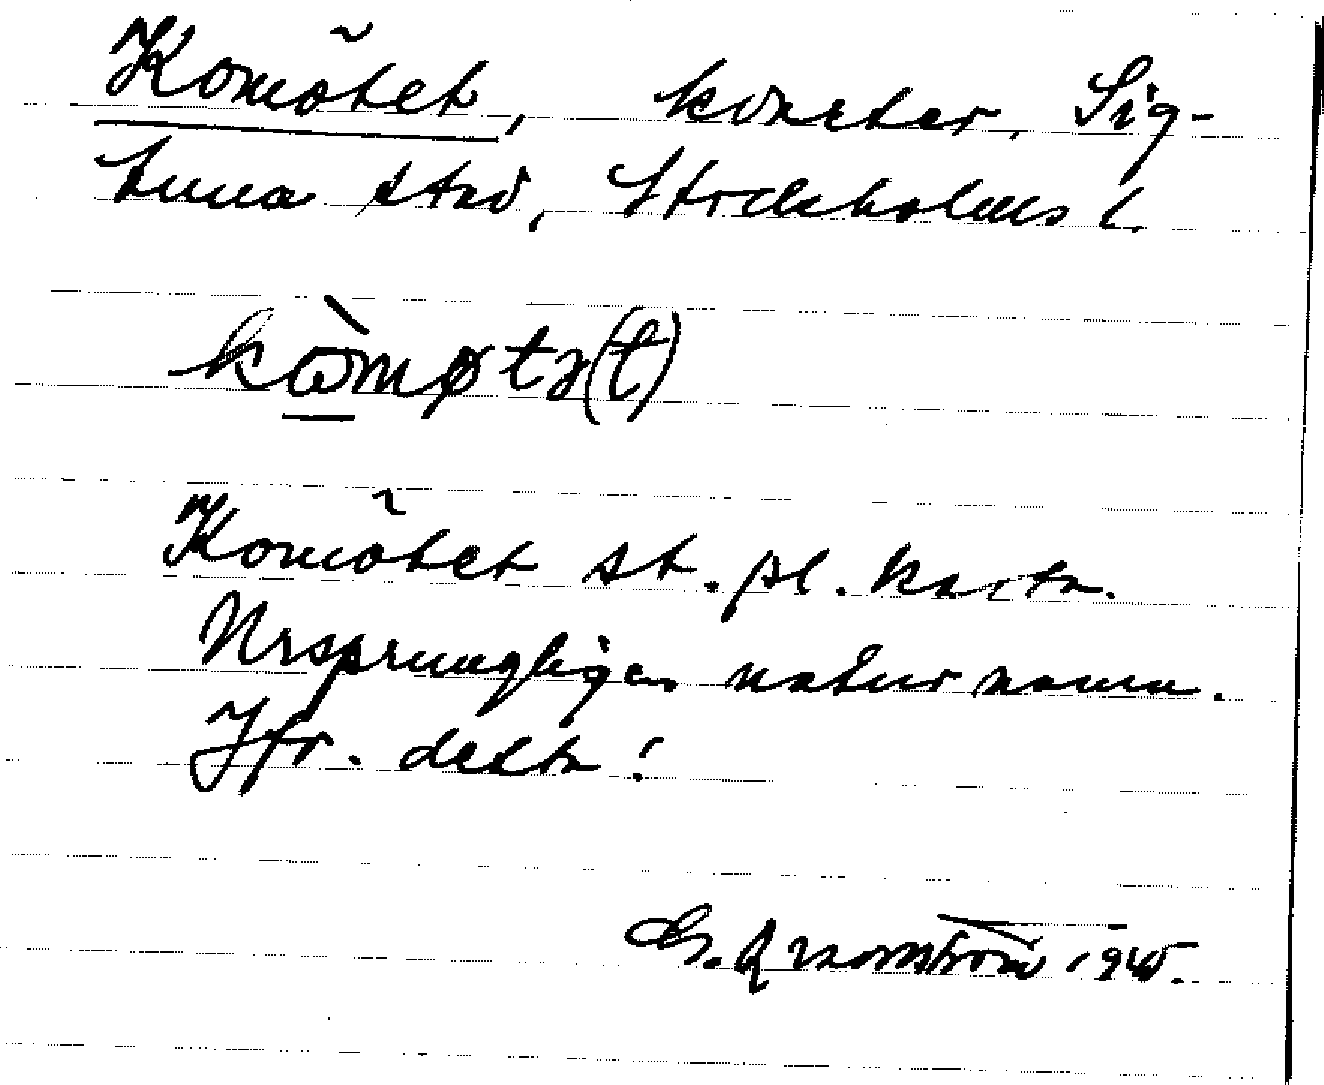 Komötet, kvarter, Sig-
tuna stad, Stockholms l.
Komötet st. pl. karta.
Ursprungligen naturnamn.
Jfr. detta!
1940.